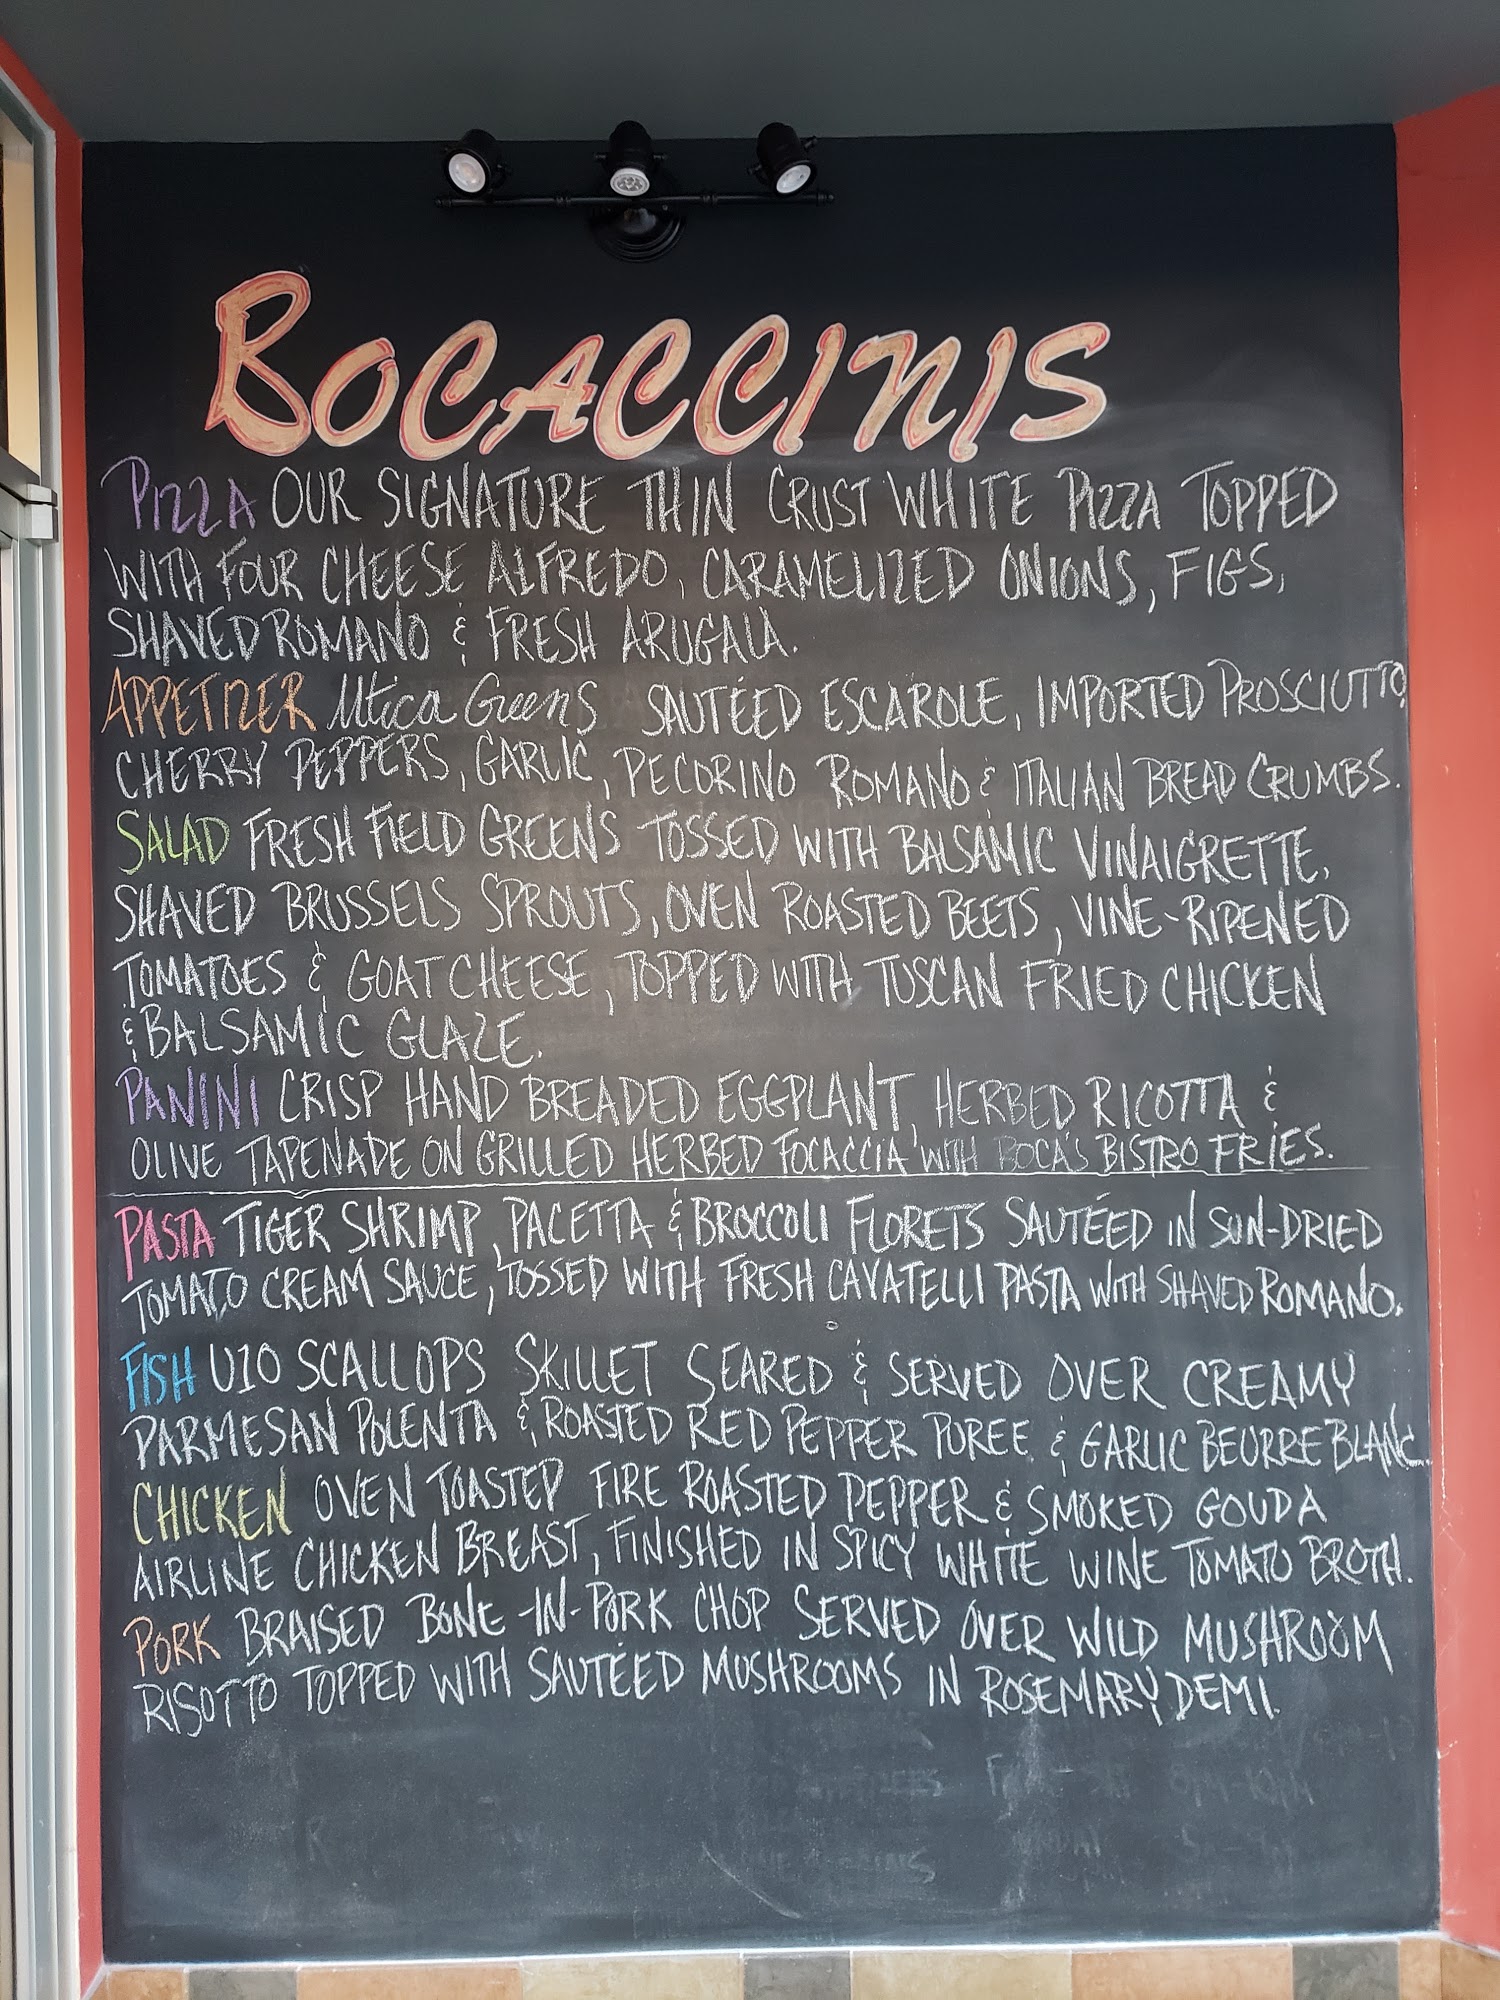 BOCACCINIS
PIZZA OUR SIGNATURE THIN CRUST WHITE PIZZA TOPPED
WITH FOUR CHEESE ALFREDO, CARAMELIZED ONIONS, FIGS,
SHAVED ROMANO & FRESH ARUGALA.
APPETIZER Utica Greens SAUTÉED ESCAROLE, IMPORTED PROSCIUTTO,
CHERRY PEPPERS, GARLIC, PECORINO ROMANO & ITALIAN BREAD CRUMBS.
SALAD FRESH FIELD GREENS TOSSED WITH BALSAMIC VINAIGRETTE,
SHAVED BRUSSELS SPROUTS, OVEN ROASTED BEETS, VINE-RIPENED
TOMATOES & GOAT CHEESE, TOPPED WITH TUSCAN FRIED CHICKEN
& BALSAMIC GLAZE.
PANINI CRISP HAND BREADED EGGPLANT, HERBED RICOTTA &
OLIVE TAPENADE ON GRILLED HERBED FOCACCIA WITH BOCA'S BISTRO FRIES.
PASTA TIGER SHRIMP, PACETTA & BROCCOLI FLORETS SAUTÉED IN SUN-DRIED
TOMATO CREAM SAUCE, TOSSED WITH FRESH CAVATELLI PASTA WITH SHAVED ROMANO.
FISH U10 SCALLOPS SKILLET SEARED & SERVED OVER CREAMY
PARMESAN POLENTA & ROASTED RED PEPPER PUREE & GARLIC BEURRE BLANC.
CHICKEN OVEN TOASTED FIRE ROASTED PEPPER & SMOKED GOUDA
AIRLINE CHICKEN BREAST, FINISHED IN SPICY WHITE WINE TOMATO BROTH.
PORK BRAISED BONE-IN-PORK CHOP SERVED OVER WILD MUSHROOM
RISOTTO TOPPED WITH SAUTÉED MUSHROOMS IN ROSEMARY DEMI.